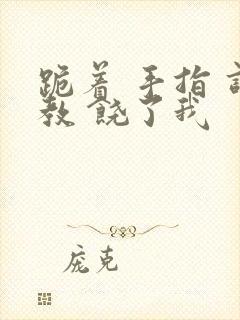 跪着 手指 调
教 饶了我
庞克